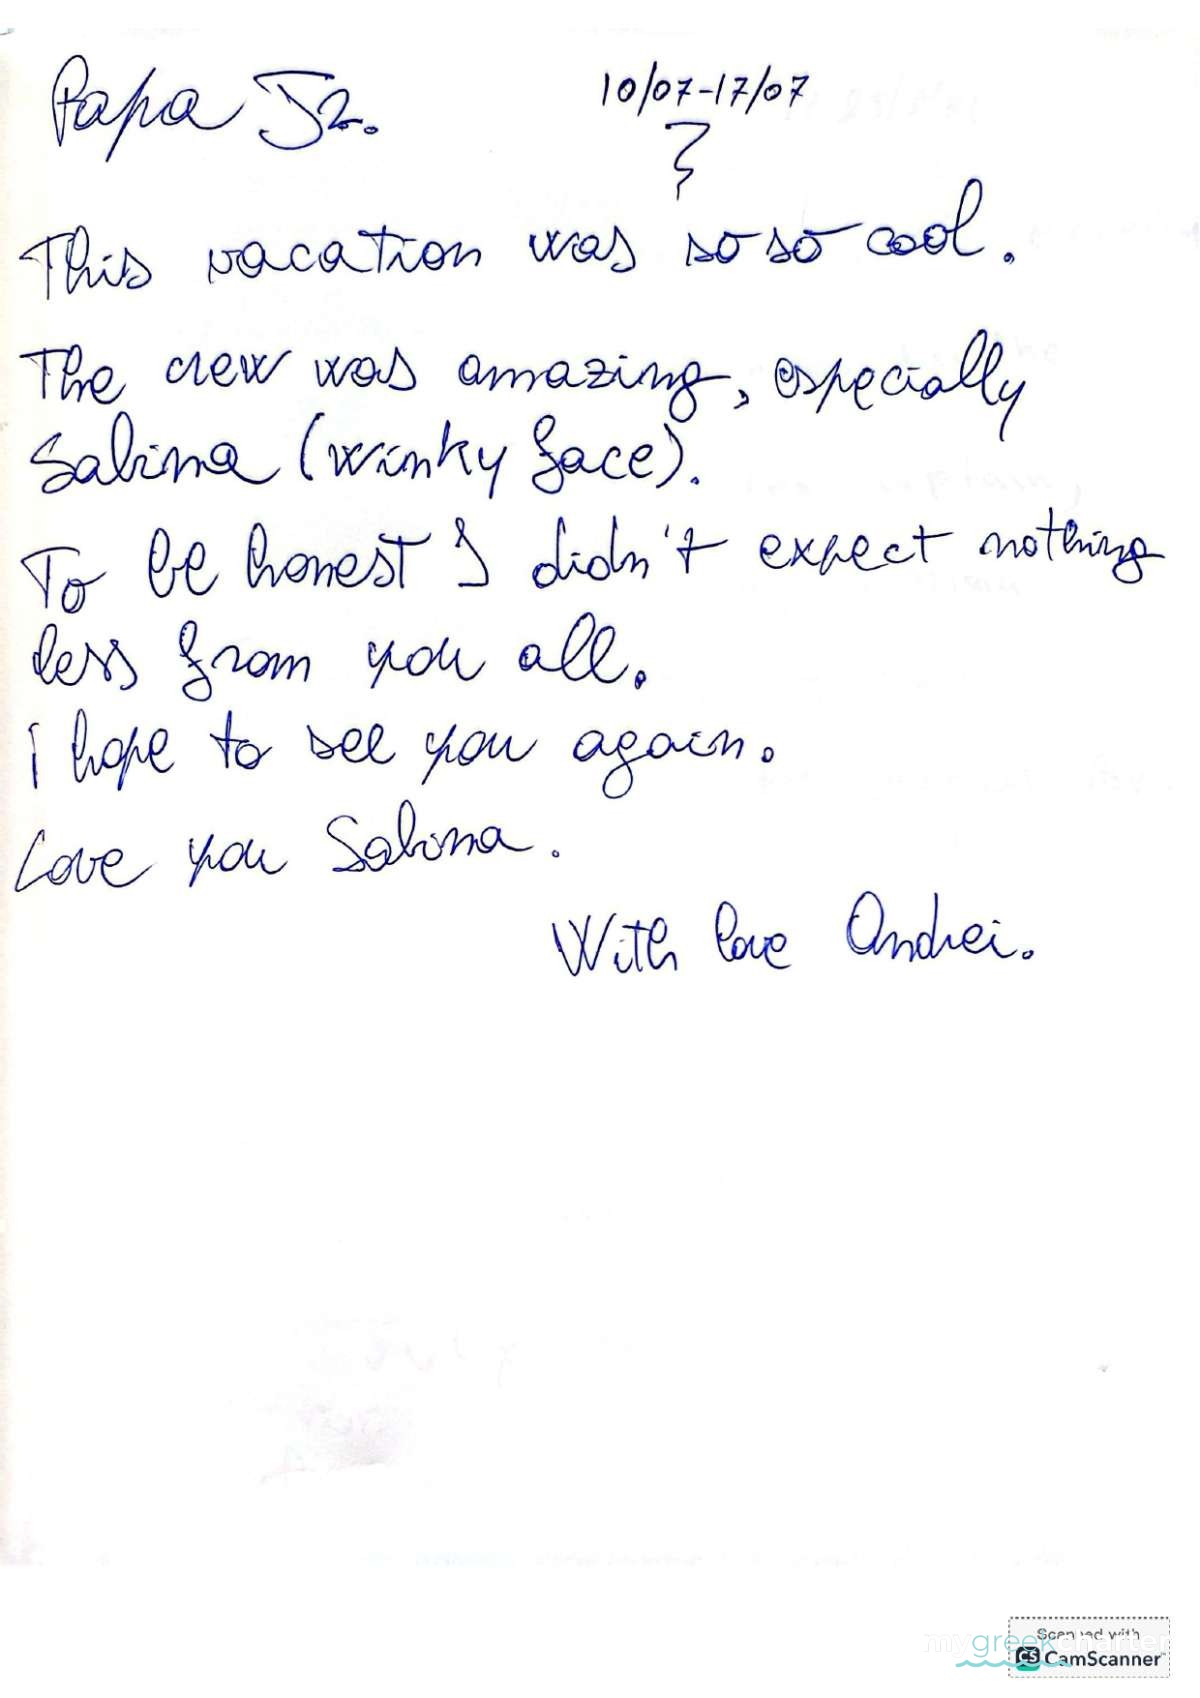 Papa Jr.
10/07-17/07
This vacation was so so cool.
The crew was amazing, especially
Sabina (winky face).
To be honest I didn't expect nothing
less from you all.
I hope to see you again.
Love you Sabina.
With love Andrei.
Scanned with
mygreekcharter
CS CamScanner